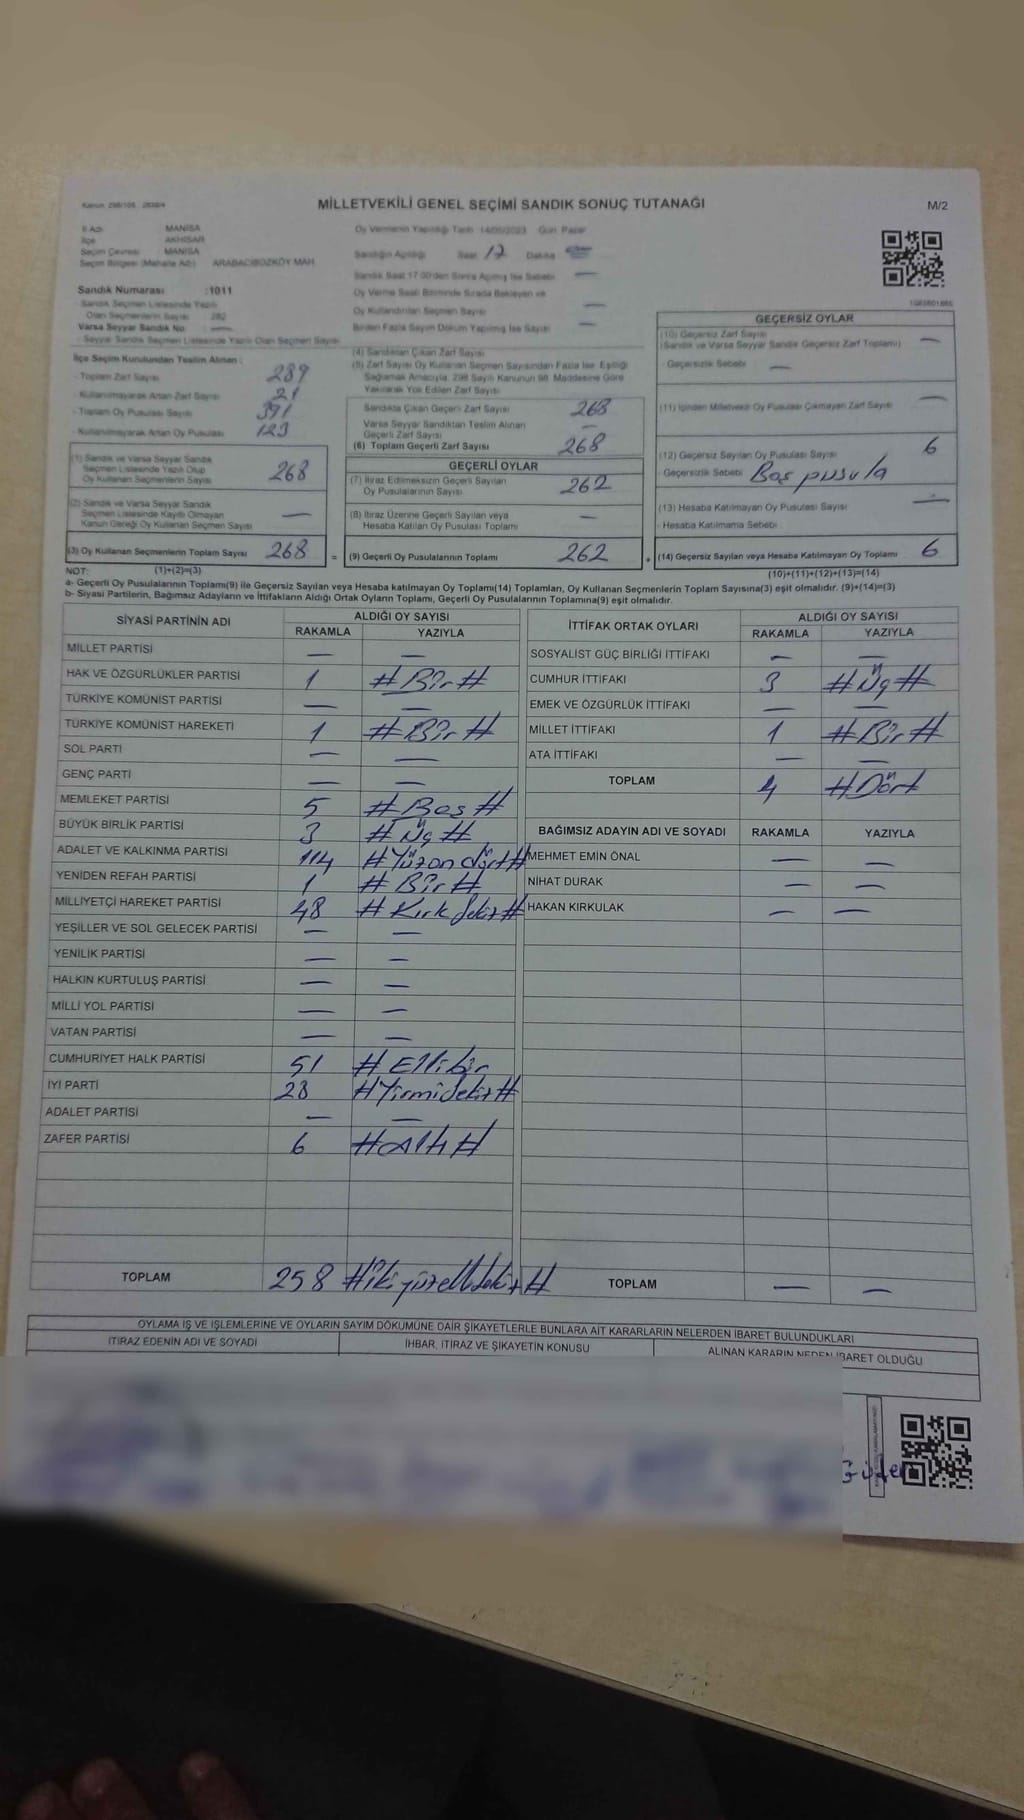 Kanun: 298/105 , 2839/4
MİLLETVEKİLİ GENEL SEÇİMİ SANDIK SONUÇ TUTANAĞI
M/2
İl Adı MANİSA
İlçe AKHİSAR
Seçim Çevresi MANİSA
Seçim Bölgesi (Mahalle Adı) ARABACIBOZKÖY MAH.
Oy Vermenin Yapıldığı Tarih 14/05/2023 Gün Pazar
Sandığın Açıldığı Saat 17 Dakika —
Sandık Saat 17.00'den Sonra Açılmış İse Sebebi —
Oy Verme Saati Bitiminde Sırada Bekleyen ve
Oy Kullandırılan Seçmen Sayısı —
Birden Fazla Sayım Döküm Yapılmış İse Sayısı —
Sandık Numarası :1011
- Sandık Seçmen Listesinde Yazılı
Olan Seçmenlerin Sayısı 282
Varsa Seyyar Sandık No —
- Seyyar Sandık Seçmen Listesinde Yazılı Olan Seçmen Sayısı
İlçe Seçim Kurulundan Teslim Alınan :
- Toplam Zarf Sayısı 289
- Kullanılmayarak Artan Zarf Sayısı 21
- Toplam Oy Pusulası Sayısı 391
- Kullanılmayarak Artan Oy Pusulası 123
(1) Sandık ve Varsa Seyyar Sandık
Seçmen Listesinde Yazılı Olup
Oy Kullanan Seçmenlerin Sayısı 268
(2) Sandık ve Varsa Seyyar Sandık
Seçmen Listesinde Kayıtlı Olmayan
Kanun Gereği Oy Kullanan Seçmen Sayısı —
(3) Oy Kullanan Seçmenlerin Toplam Sayısı 268
(4) Sandıktan Çıkan Zarf Sayısı
(5) Zarf Sayısı Oy Kullanan Seçmen Sayısından Fazla İse, Eşitliği
Sağlamak Amacıyla, 298 Sayılı Kanunun 98. Maddesine Göre
Yakılarak Yok Edilen Zarf Sayısı
Sandıkta Çıkan Geçerli Zarf Sayısı 268
Varsa Seyyar Sandıktan Teslim Alınan
Geçerli Zarf Sayısı —
(6) Toplam Geçerli Zarf Sayısı 268
GEÇERLİ OYLAR
(7) İtiraz Edilmeksizin Geçerli Sayılan
Oy Pusulalarının Sayısı 262
(8) İtiraz Üzerine Geçerli Sayılan veya
Hesaba Katılan Oy Pusulası Toplamı —
= (9) Geçerli Oy Pusulalarının Toplamı 262
GEÇERSİZ OYLAR
(10) Geçersiz Zarf Sayısı
(Sandık ve Varsa Seyyar Sandık Geçersiz Zarf Toplamı) —
- Geçersizlik Sebebi —
(11) İçinden Milletvekili Oy Pusulası Çıkmayan Zarf Sayısı —
(12) Geçersiz Sayılan Oy Pusulası Sayısı 6
- Geçersizlik Sebebi Boş pusula
(13) Hesaba Katılmayan Oy Pusulası Sayısı —
- Hesaba Katılmama Sebebi
+ (14) Geçersiz Sayılan veya Hesaba Katılmayan Oy Toplamı 6
NOT: (1)+(2)=(3)
(10)+(11)+(12)+(13)=(14)
a- Geçerli Oy Pusulalarının Toplamı(9) ile Geçersiz Sayılan veya Hesaba katılmayan Oy Toplamı(14) Toplamları, Oy Kullanan Seçmenlerin Toplam Sayısına(3) eşit olmalıdır. (9)+(14)=(3)
b- Siyasi Partilerin, Bağımsız Adayların ve İttifakların Aldığı Ortak Oyların Toplamı, Geçerli Oy Pusulalarının Toplamına(9) eşit olmalıdır.
SİYASİ PARTİNİN ADI ALDIĞI OY SAYISI
RAKAMLA YAZIYLA
MİLLET PARTİSİ — —
HAK VE ÖZGÜRLÜKLER PARTİSİ 1 #Bir#
TÜRKİYE KOMÜNİST PARTİSİ — —
TÜRKİYE KOMÜNİST HAREKETİ 1 #Bir#
SOL PARTİ — —
GENÇ PARTİ — —
MEMLEKET PARTİSİ 5 #Beş#
BÜYÜK BİRLİK PARTİSİ 3 #Üç#
ADALET VE KALKINMA PARTİSİ 114 #Yüzon dört#
YENİDEN REFAH PARTİSİ 1 #Bir#
MİLLİYETÇİ HAREKET PARTİSİ 48 #Kırk Sekiz#
YEŞİLLER VE SOL GELECEK PARTİSİ — —
YENİLİK PARTİSİ — —
HALKIN KURTULUŞ PARTİSİ — —
MİLLİ YOL PARTİSİ — —
VATAN PARTİSİ — —
CUMHURİYET HALK PARTİSİ 51 #Elli bir
İYİ PARTİ 28 #Yirmi Sekiz#
ADALET PARTİSİ — —
ZAFER PARTİSİ 6 #Altı#
TOPLAM 258 #iki yüzelli sekiz#
İTTİFAK ORTAK OYLARI ALDIĞI OY SAYISI
RAKAMLA YAZIYLA
SOSYALİST GÜÇ BİRLİĞİ İTTİFAKI — —
CUMHUR İTTİFAKI 3 #Üç#
EMEK VE ÖZGÜRLÜK İTTİFAKI — —
MİLLET İTTİFAKI 1 #Bir#
ATA İTTİFAKI — —
TOPLAM 4 #Dört
BAĞIMSIZ ADAYIN ADI VE SOYADI RAKAMLA YAZIYLA
MEHMET EMİN ÖNAL — —
NİHAT DURAK — —
HAKAN KIRKULAK — —
TOPLAM — —
OYLAMA İŞ VE İŞLEMLERİNE VE OYLARIN SAYIM DÖKÜMÜNE DAİR ŞİKAYETLERLE BUNLARA AİT KARARLARIN NELERDEN İBARET BULUNDUKLARI
İTİRAZ EDENİN ADI VE SOYADI İHBAR, İTİRAZ VE ŞİKAYETİN KONUSU ALINAN KARARIN NEDEN İBARET OLDUĞU